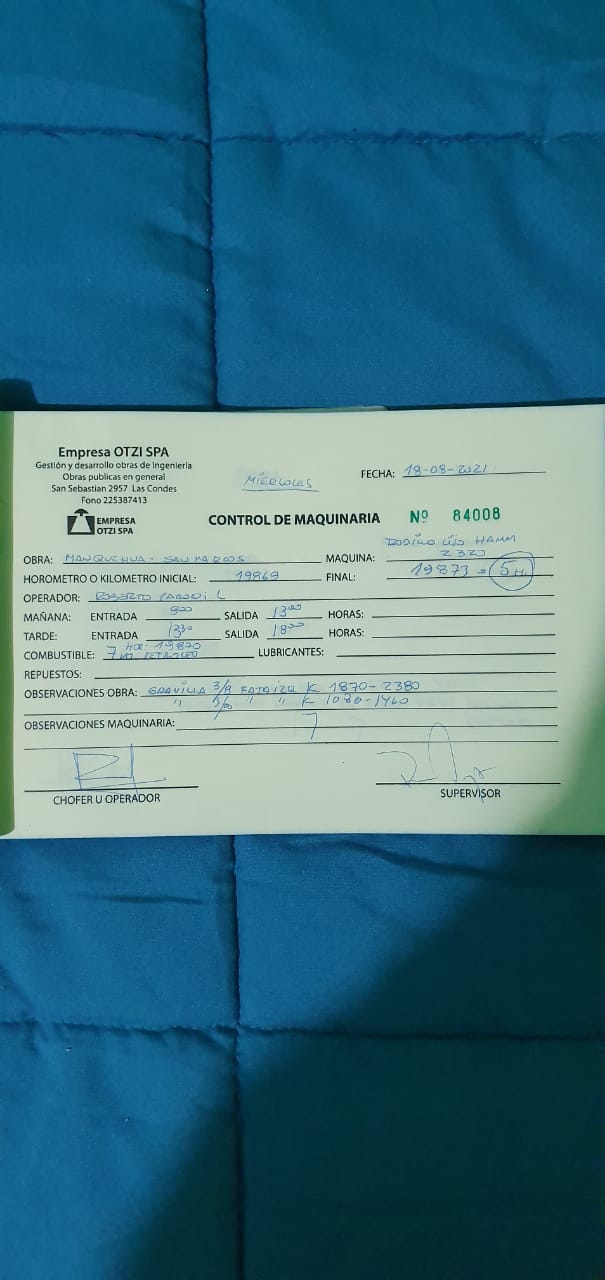 Empresa OTZI SPA
Gestión y desarrollo obras de Ingenieria
Obras publicas en general
San Sebastian 2957 Las Condes
Fono 225387413
EMPRESA
OTZI SPA
MIERCOLES
FECHA: 18-08-2021
CONTROL DE MAQUINARIA Nº 84008
OBRA: MANQUEHUA - SAN MARCOS MAQUINA: RODILLO HAMM
2320
HOROMETRO O KILOMETRO INICIAL: 19868 FINAL: 19873 = 5 H.
OPERADOR: ROBERTO PARODI L
MAÑANA: ENTRADA 900 SALIDA 1300 HORAS:
TARDE: ENTRADA 1330 SALIDA 1800 HORAS:
COMBUSTIBLE: 7 HOR: 19870 PETROLEO LUBRICANTES:
REPUESTOS:
OBSERVACIONES OBRA: GRAVILLA 3/8 K 1870-2380
" 3/8 " " K 1080-1460
OBSERVACIONES MAQUINARIA:
CHOFER U OPERADOR
SUPERVISOR